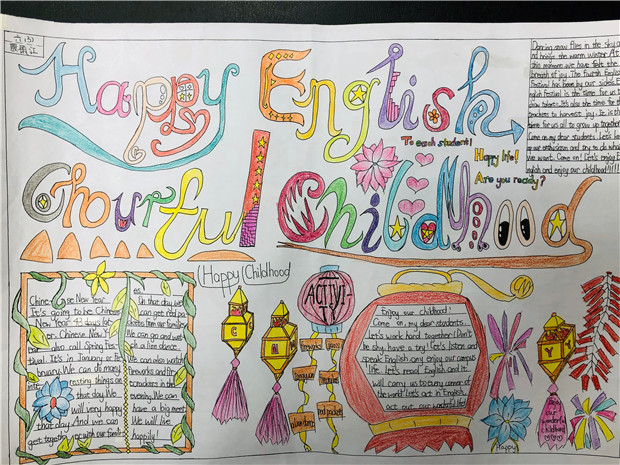 六(3)
Happy English
Colourful Childhood
To each student!
Happy life!
Are you ready?
Dancing snow flies in the sky a
nd brings the warm winter. At
this moment we have felt the
breath of joy. The fourth English
Festival has been by our sides. E
nglish Festival is the time for us to
show talent. It's also the time for the
teachers to harvest joy. It is the
time for us all to grow up together.
Come on my dear students. Let's
up our enthusiasm and try to do what
we want. Come on! Let's enjoy E
nglish and enjoy our childhood!!!!!
Happy Childhood
Chinese New Year
It's going to be Chinese
New Year 43 days
Chinese New Y
ear also call Spring Fes
tival. It's in January or Fe
bruary. We can do many
interesting things on
that day. We
will very happy
that day. And we can
get together with our families
es. In that day we
can get red po
ckets from our families
We can go and wat
ch a lion dance.
We can also watch
fireworks and fire
crackers in the
evening. We can
have a big meal
We will live
happily!
ACTIVI-
TY
Fireworks
lion dance
Red packets
Enjoy our childhood!
Come on, my dear students.
Let's work hard together! Don't
be shy, have a try! Let's listen and
speak English any enjoy our campus
life. Let's read English and it
will carry us to every corner of
the world. Let's act in English,
act out our wonderful life!
our
wonderful
childhood
Happy